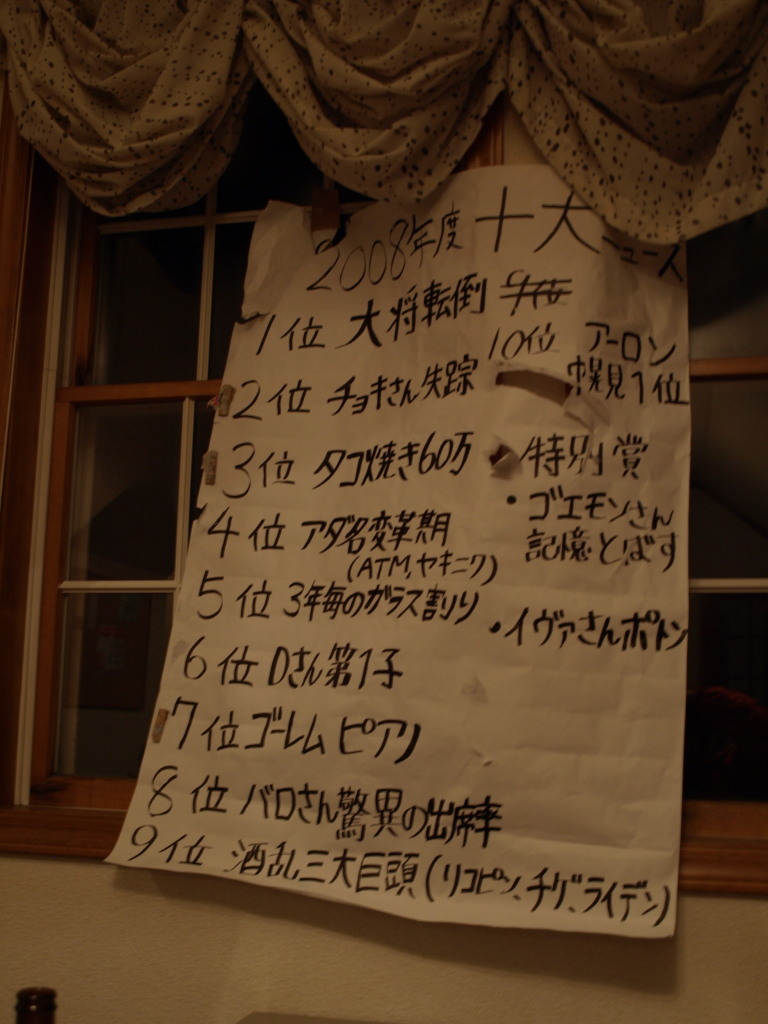 2008年度 十大ニュース
1位 大将転倒
2位 チョキさん失踪
3位 タコ焼き60万
4位 アダ名変革期
(ATM,ヤキニク)
5位 3年毎のガラス割り
6位 Dさん第1子
7位 ゴーレム ピアノ
8位 バロさん驚異の出席率
9位 酒乱三大巨頭(リコピン、チゲ、ライデン)
9位
10位 アーロン
幌見1位
特別賞
・ゴエモンさん
記憶とばす
・イヴァさんポトン